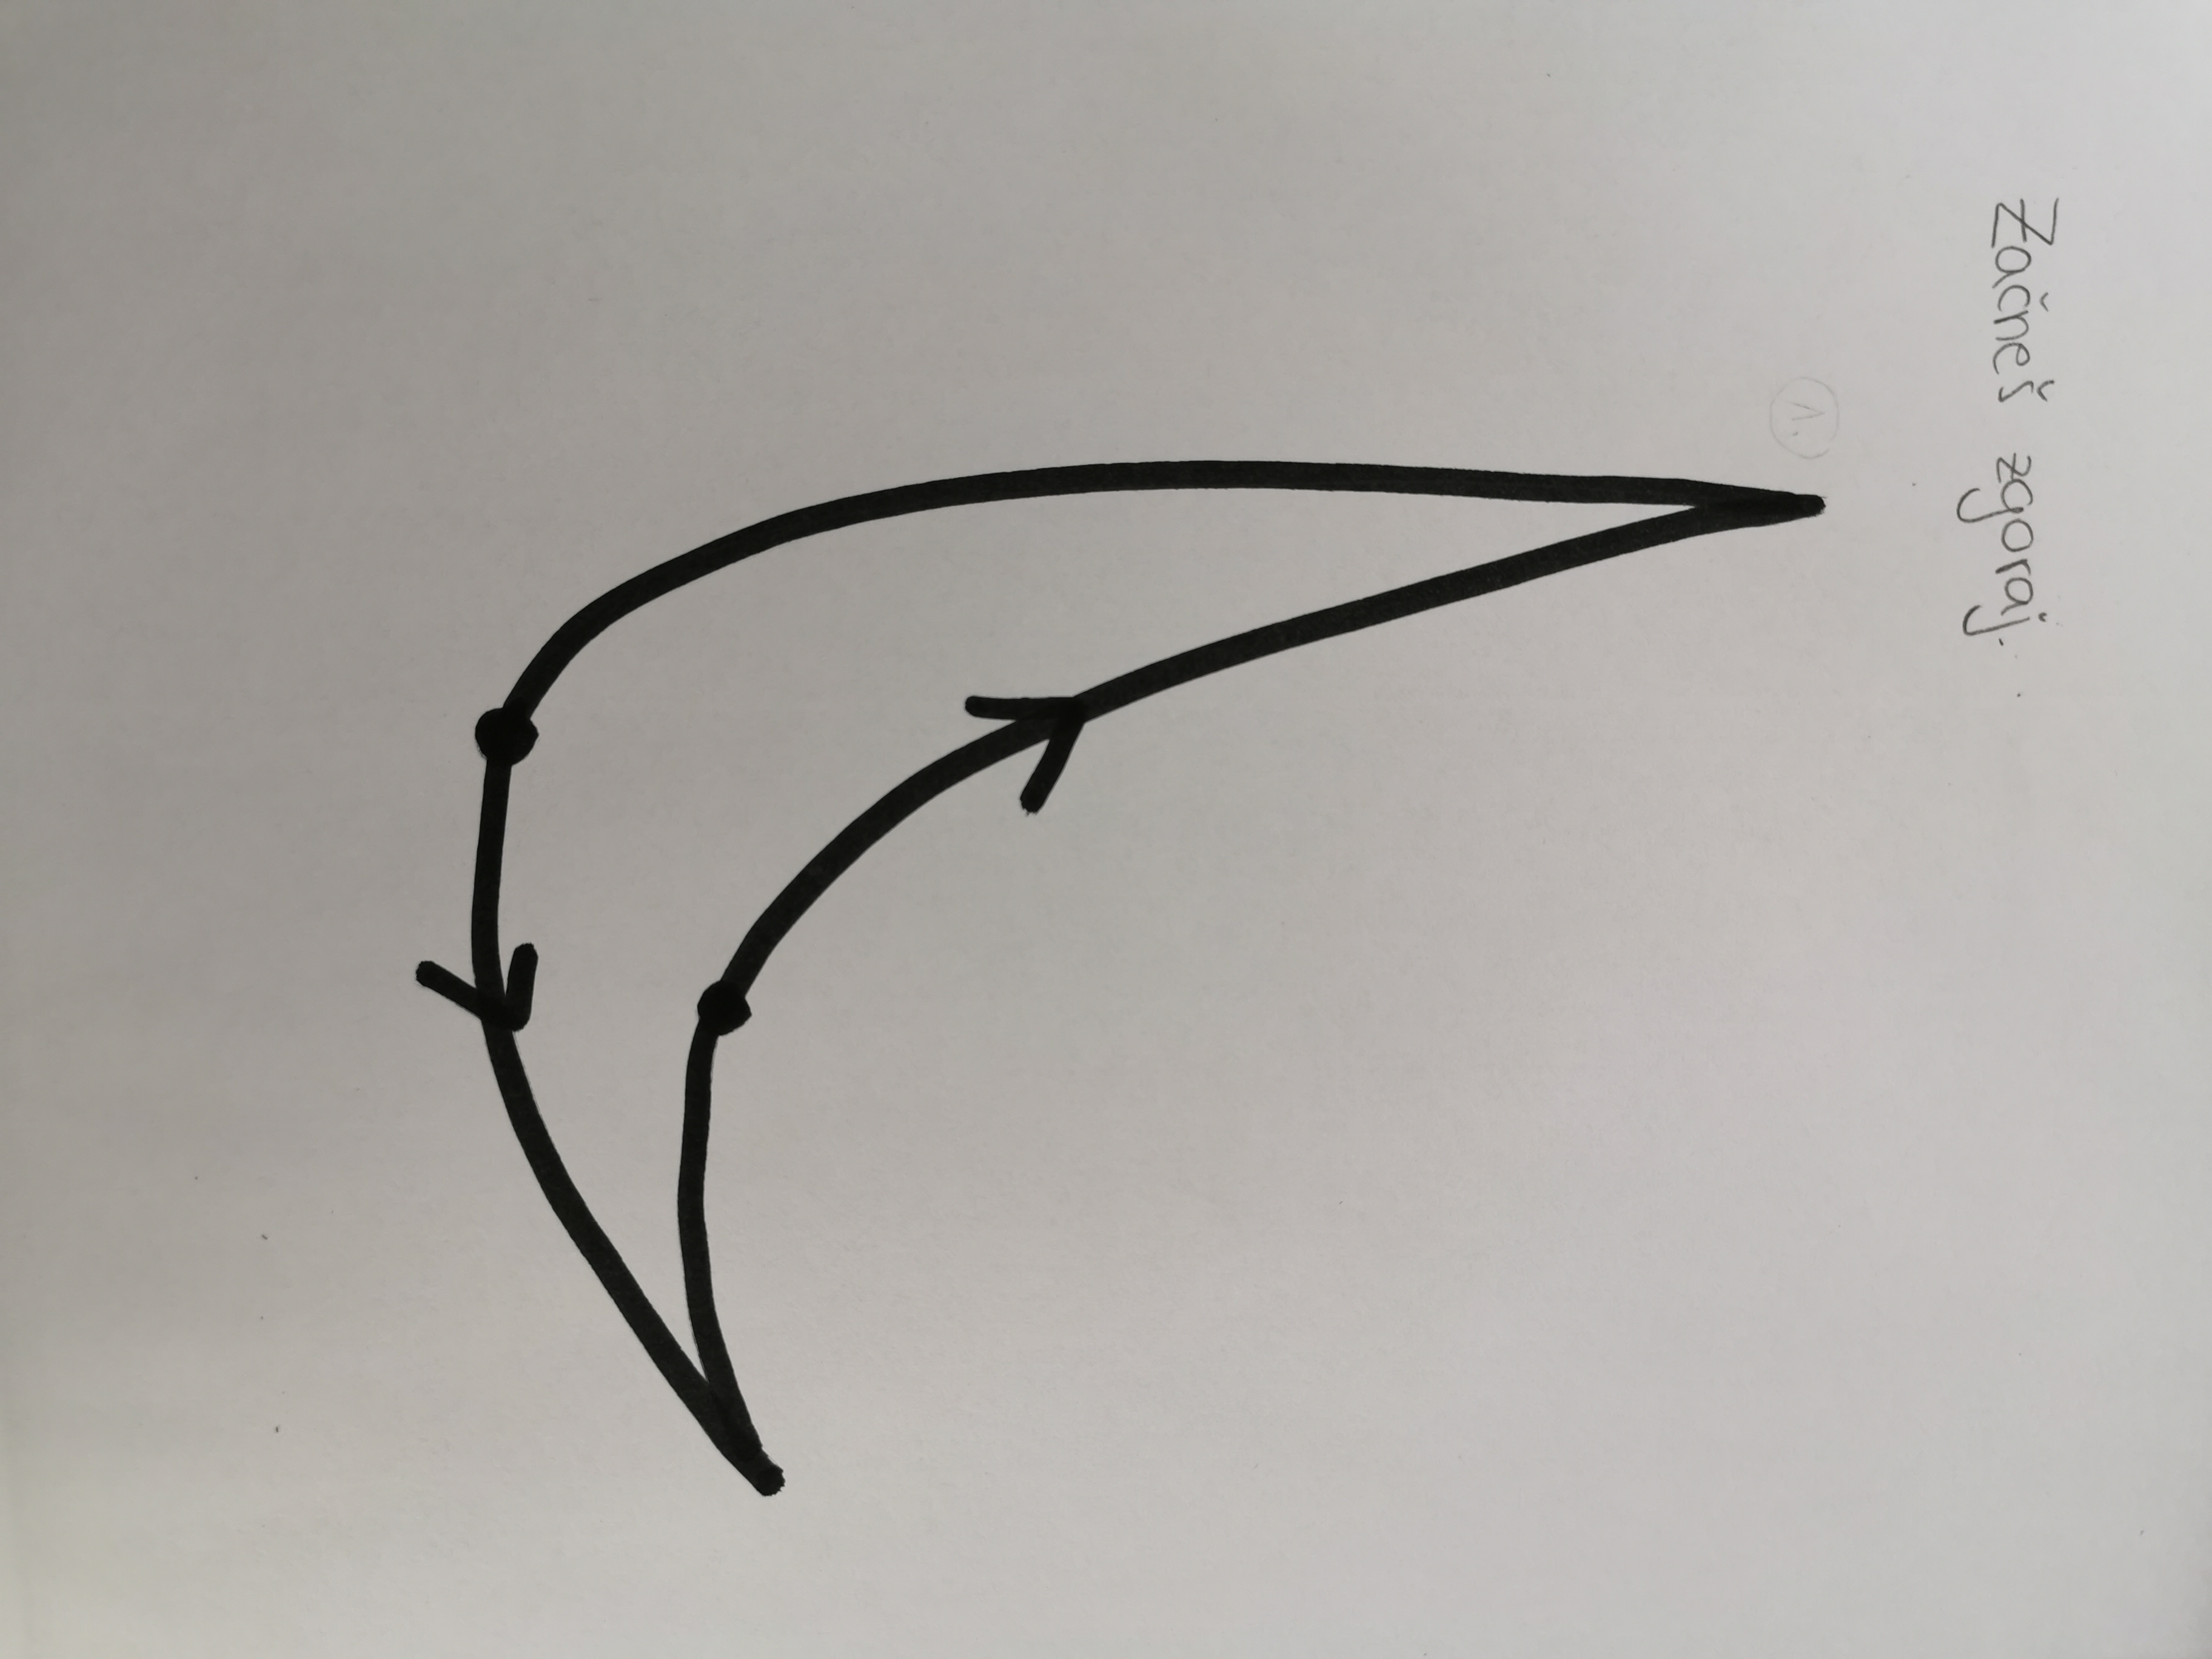 Začneš zgoraj.
1.